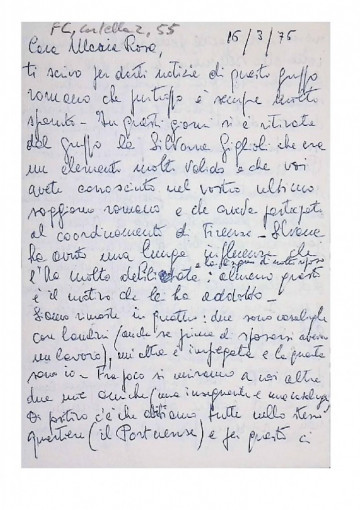 FC, cartella 2, 55
16/3/76
Cara Maria Rosa,
ti scrivo per darti notizie di questo gruppo
romano che purtroppo è sempre molto
sparuto - In questi giorni si è ritirata
dal gruppo la Silvana Giglioli che era
un elemento molto valido e che voi
avete conosciuto nel vostro ultimo
soggiorno romano e che aveva partecipato
al coordinamento di Firenze - Silvana
ha avuto una lunga influenza che
l'ha molto debilitata: almeno questo
è il motivo che lei ha addotto -
Siamo rimaste in quattro: due sono casalinghe
con bambini (anche se prima di sposarsi avevano
un lavoro), un'altra è impiegata e la quarta
sono io - Fra poco si uniranno a noi altre
due mie amiche (una insegnante e una casalinga)
Di positivo c'è che abitiamo tutte nello stesso
quartiere (il Portuense) e per questo ci